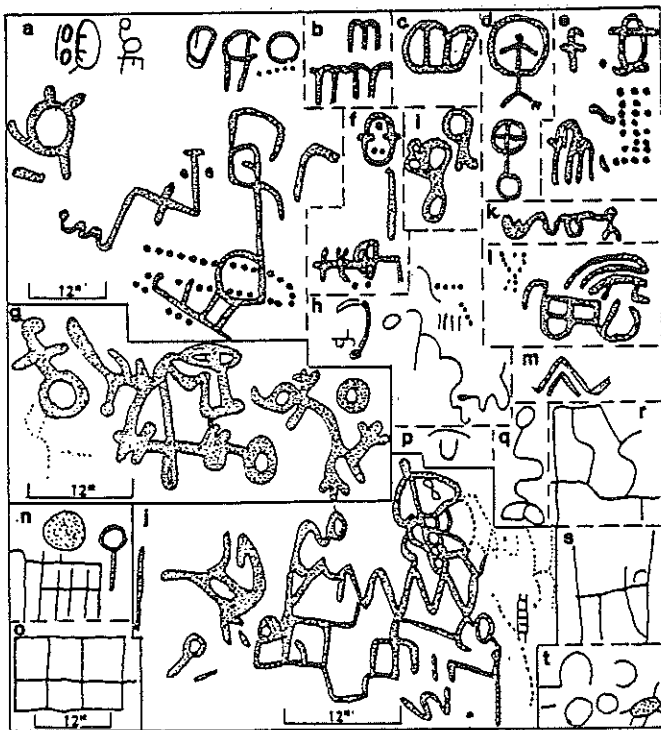 a
b
c
d
e
f
i
k
l
12"
h
g
m
p
q
r
12"
n
j
s
o
t
12"
12"